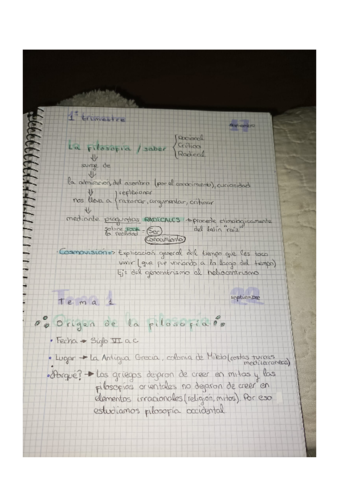 1º trimestre
17
Racional
La filosofía / saber { Crítico
Radical
surge de
la admiración, del asombro (por el conocimiento), curiosidad
reflexionar
nos lleva a { razonar, argumentar, criticar
mediante preguntas RADICALES: etimológicamente
sobre la realidad → Ser
del latín raíz
Conocimiento
Cosmovisión: Explicación general del tiempo que les toca
vivir (que va variando a lo largo del tiempo)
Ej: del geocentrismo al heliocentrismo
Tema 1
22
septiembre
Origen de la filosofía
• Fecha → Siglo VI a.C
• Lugar → La Antigua Grecia, colonia de Mileto (costas turcas
mediterráneas)
• ¿Porque? → Los griegos dejaron de creer en mitos y los
filosofos orientales no dejaron de creer en
elementos irracionales (religion, mitos). Por eso
estudiamos filosofía occidental